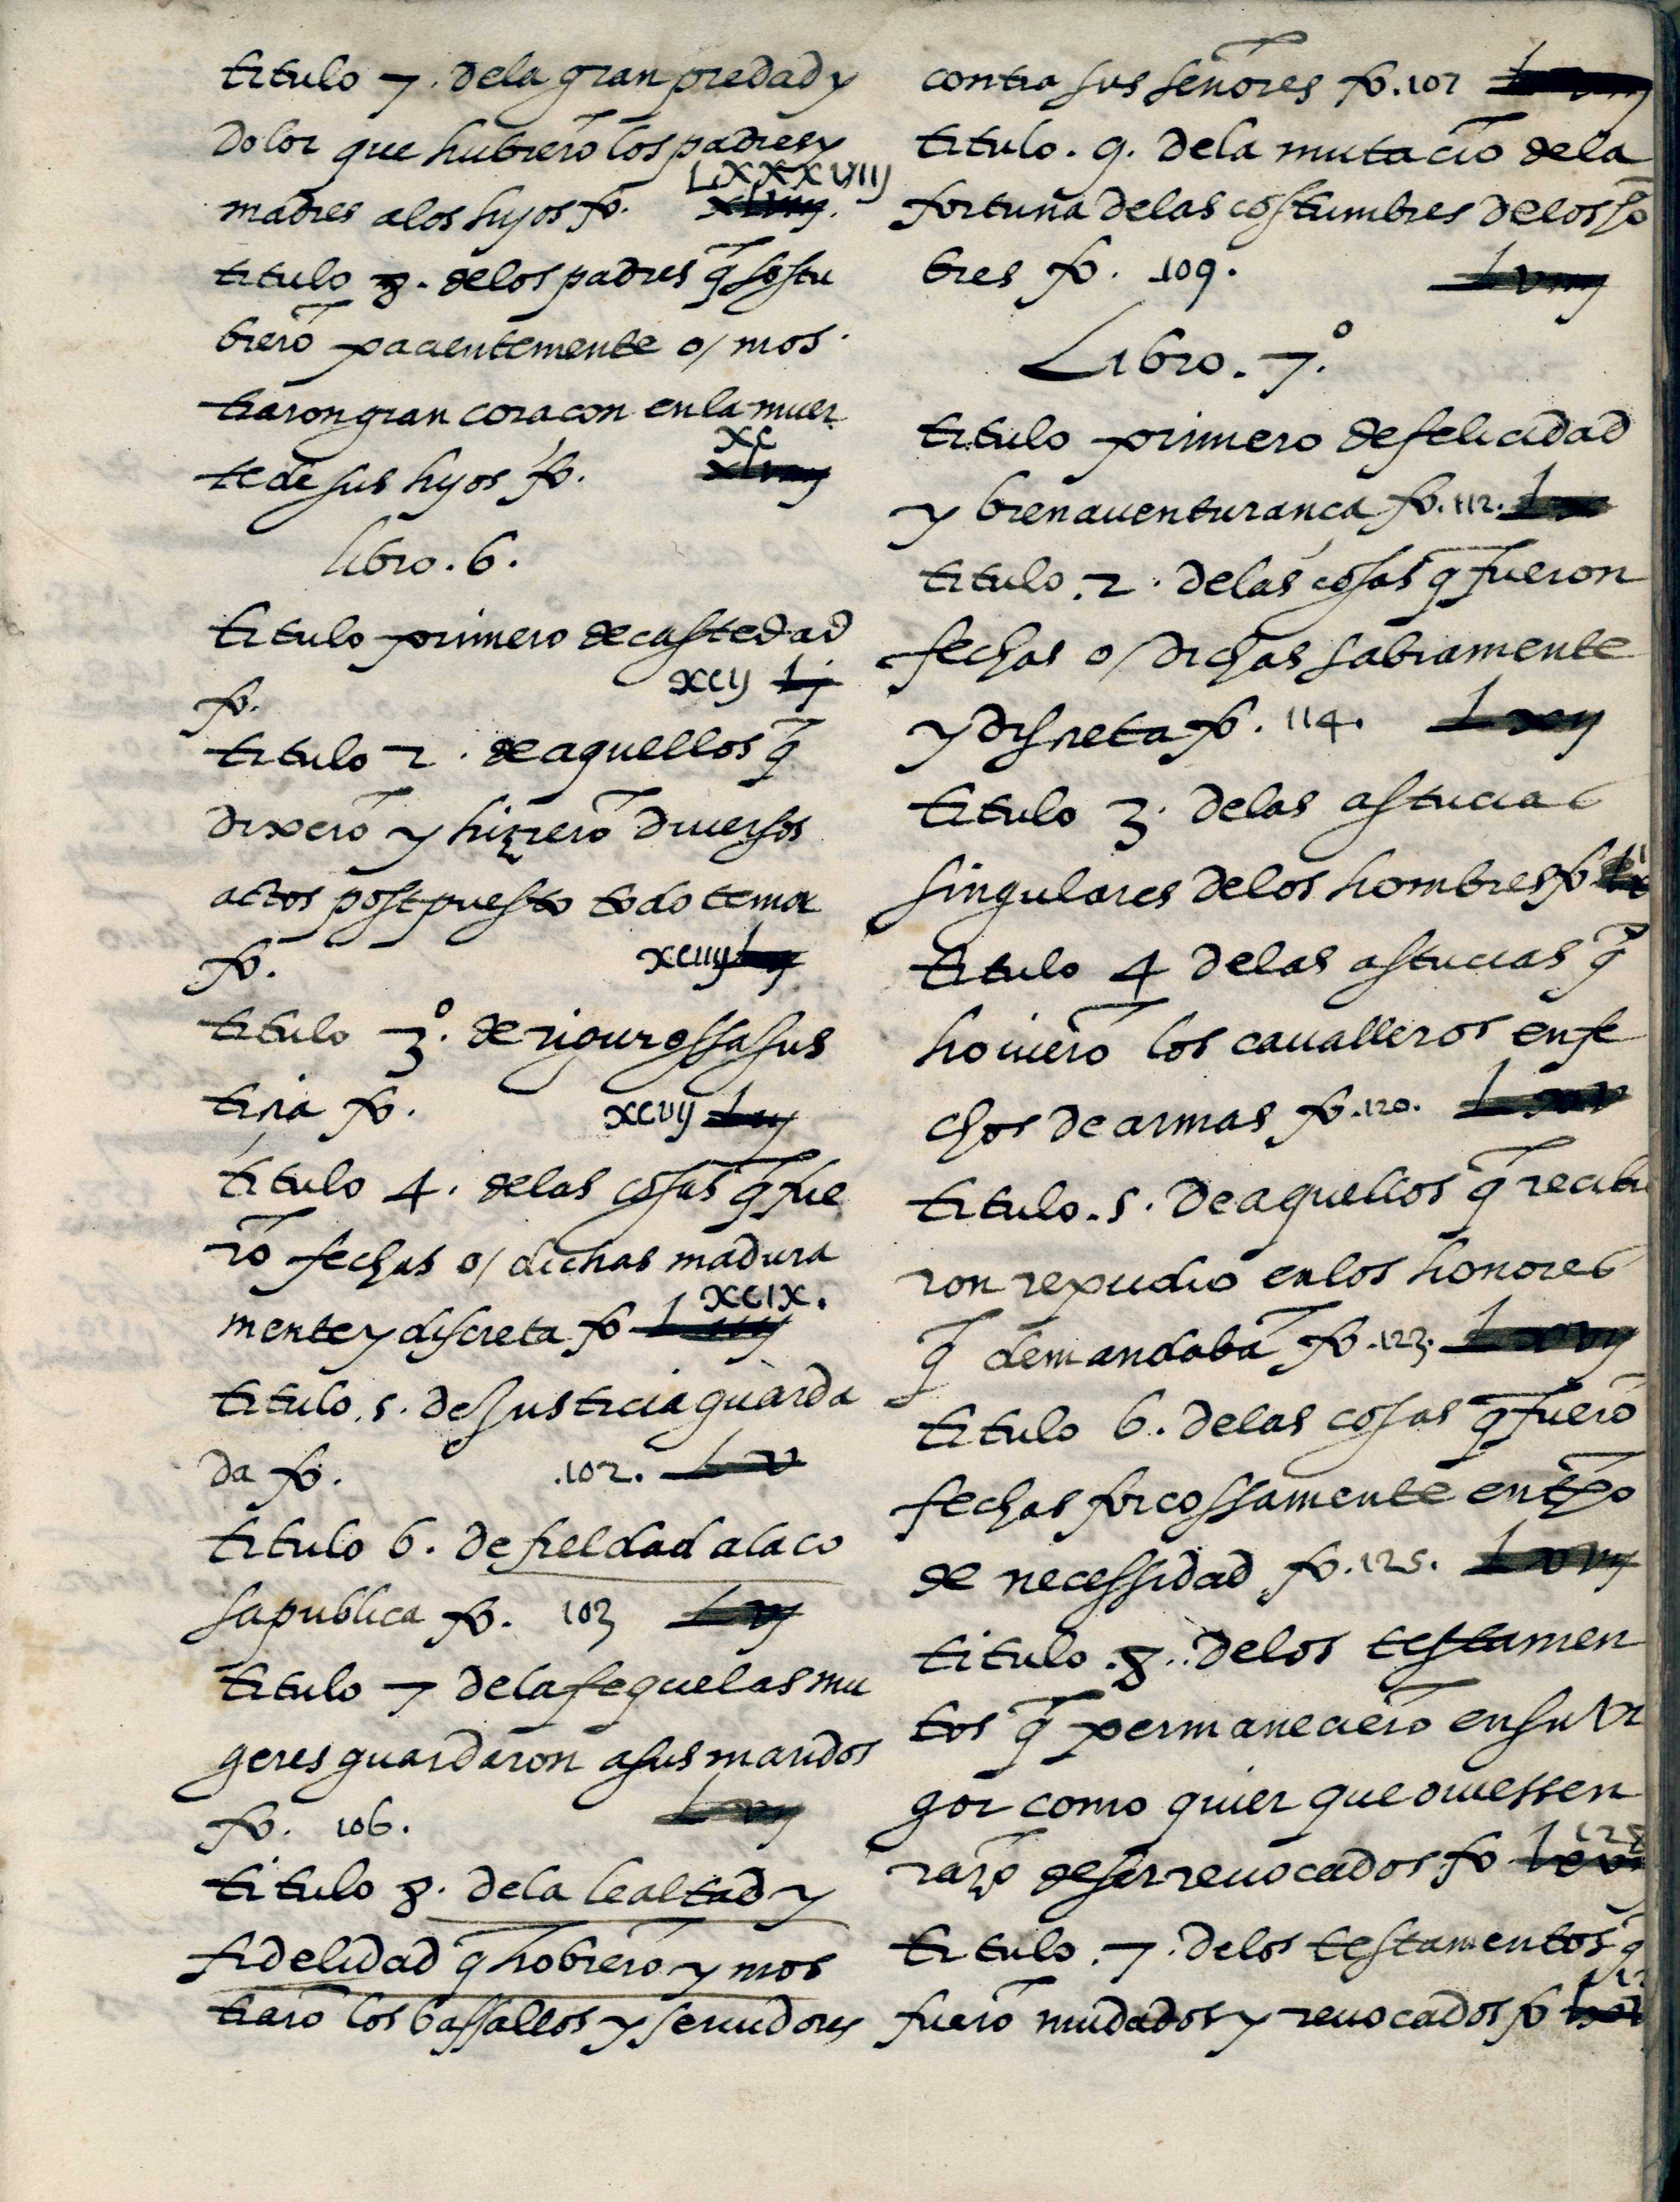 titulo 7. dela gran piedad y
dolor que hubierō los padres y
LXXXVIIJ
madres a los hijos fo.
titulo 8. delos padres q̄ sostu
bierō pacientemente o/ mos
traron gran coracon en la muer
xc
te de sus hijos fo.
libro. 6.
titulo primero de castedad
fo. xcij lj
titulo 2. de aquellos q̄
dixerō y hizierō diuersos
actos postpuesto todo temor
fo. xciiij
titulo 3º. de rigurossa jus
ticia fo. xcvij
titulo 4. delas cosas q̄ fue
rō fechas o/ dichas madura
xcix.
mente y discreta fo
titulo. 5. de justicia guarda
da fo. .102. Lv
titulo 6. de fieldad a la co
sa publica fo. 103
titulo 7 dela fe que las mu
geres guardaron a sus maridos
fo. 106.
titulo 8. dela lealtad y
fidelidad q̄ hobierō y mos
trarō los bassallos y seruidores
contra sus señores fo. 107
titulo. 9. dela mutaciō dela
fortuna delas costumbres delos hō
bres fo. 109.
Libro. 7º.
titulo primero de felicidad
y bienauenturanca fo. 112.
titulo. 2. delas cosas q̄ fueron
fechas o/ dichas sabiamente
y discreta fo. 114.
titulo 3. delas astucias
singulares delos hombres fo
titulo 4 delas astucias q̄
houierō los caualleros en fe
chos de armas fo. 120.
titulo. 5. de aquellos q̄ recibie
ron repudio en los honores
q̄ demandabā fo. 123.
titulo 6. delas cosas q̄ fuerō
fechas forcossamente en tp̄o
de necessidad fo. 125.
titulo. 8. delos testamen
tos q̄ permanecierō en su vi
gor como quier que ouiessen
razō de ser reuocados fo 128
titulo. 7. delos testamentos q̄
fuerō mudados y reuocados fo